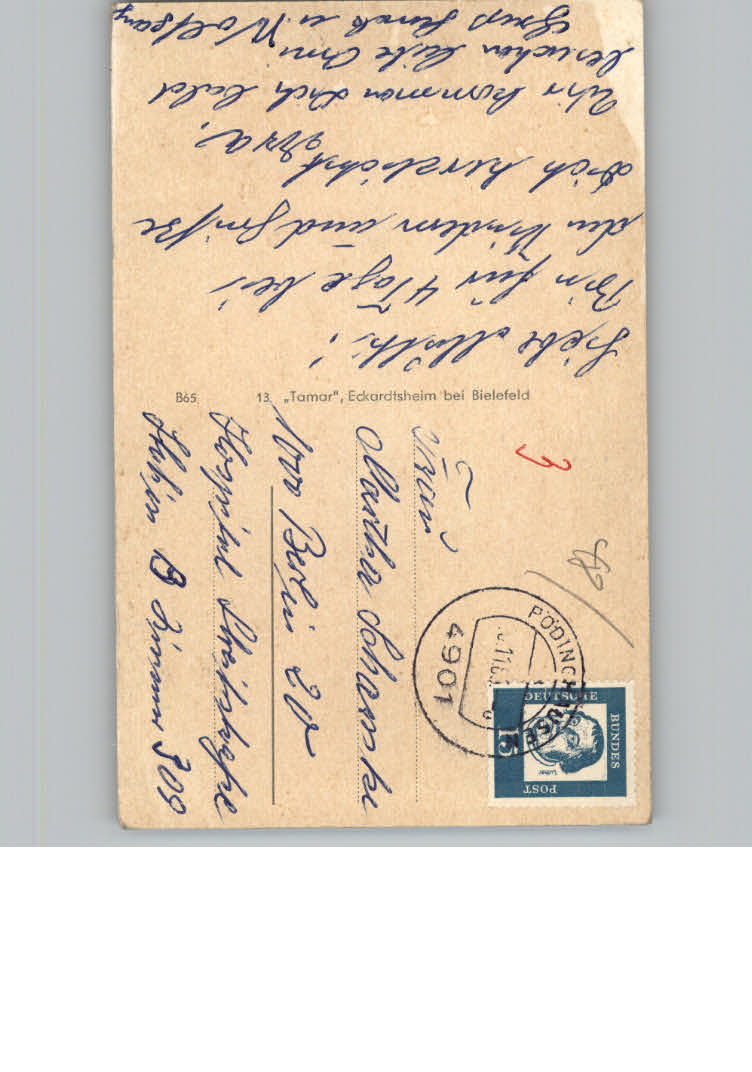 Liebe Mutti!
Bin für 4 Tage bei
den Kindern und grüße
Dich herzlichst
Wir kommen Dich bald
besuchen liebe Omi
Gruß u. Wolfgang
B65 13. „Tamar", Eckardtsheim bei Bielefeld
Frau
Martha Schamske
100 Berlin 20
Hospital
B Zimmer 309
3
PÖDINGHAUSEN
4901
DEUTSCHE
BUNDES
POST
15
Luther